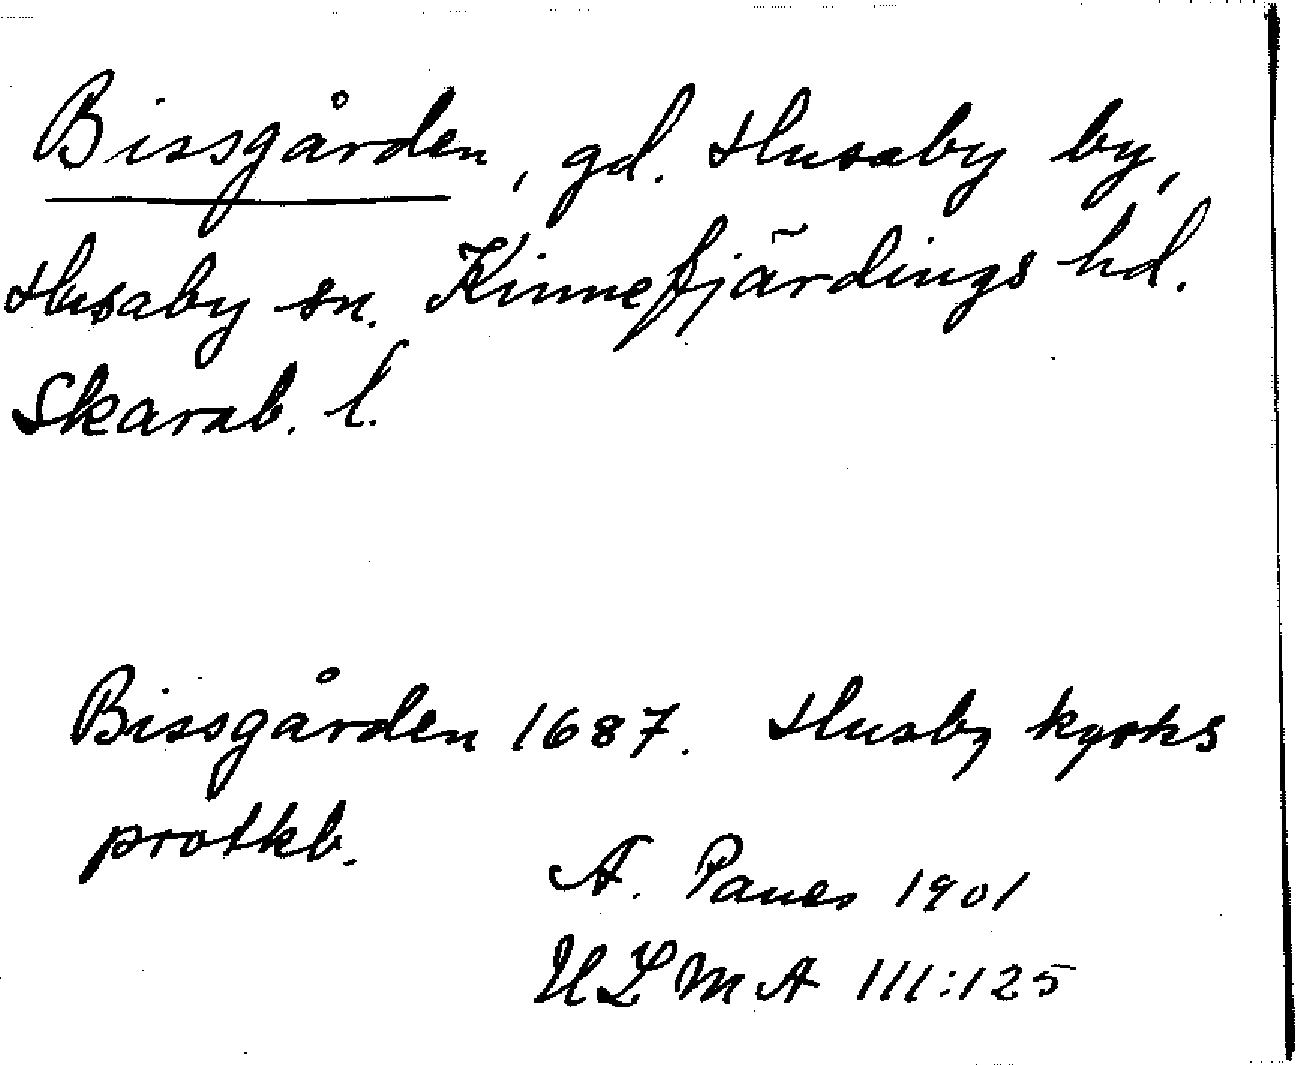 Bissgården, gd. Husaby by,
Husaby sn. Kinnefjärdings hd.
Skarab. l.
Bissgården 1687. Husby kyrks
protkb.
A. Panes 1901
ULMA 111:125